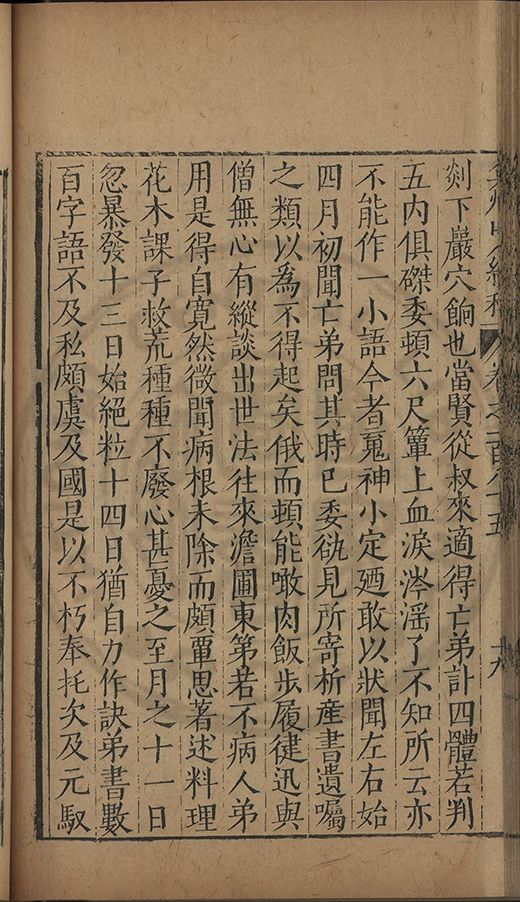 弇州山人續稿 卷之一百八十五 十九
剡下巖穴餉也當賢從叔來適得亡弟訃四體若判
五内俱磔委頓六尺簟上血淚涔滛了不知所云亦
不能作一小語今者䰟神小定廼敢以狀聞左右始
四月初聞亡弟問其時已委欲見所寄析産書遺囑
之類以為不得起矣俄而頓能噉肉飯步履徤迅與
僧無心有縱談出世法往來澹圃東第若不病人弟
用是得自寛然微聞病根未除而頗覃思著述料理
花木課子救荒種種不廢心甚憂之至月之十一日
忽暴發十三日始絕粒十四日猶自力作訣弟書數
百字語不及私頗虞及國是以不朽奉托次及元馭